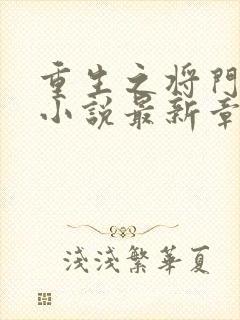 重生之将門
小說最新章
淺淺繁華夏